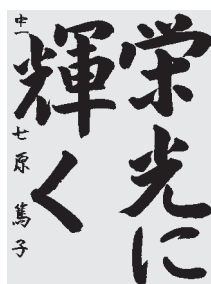 栄光に
輝く
中一 七原 篤子